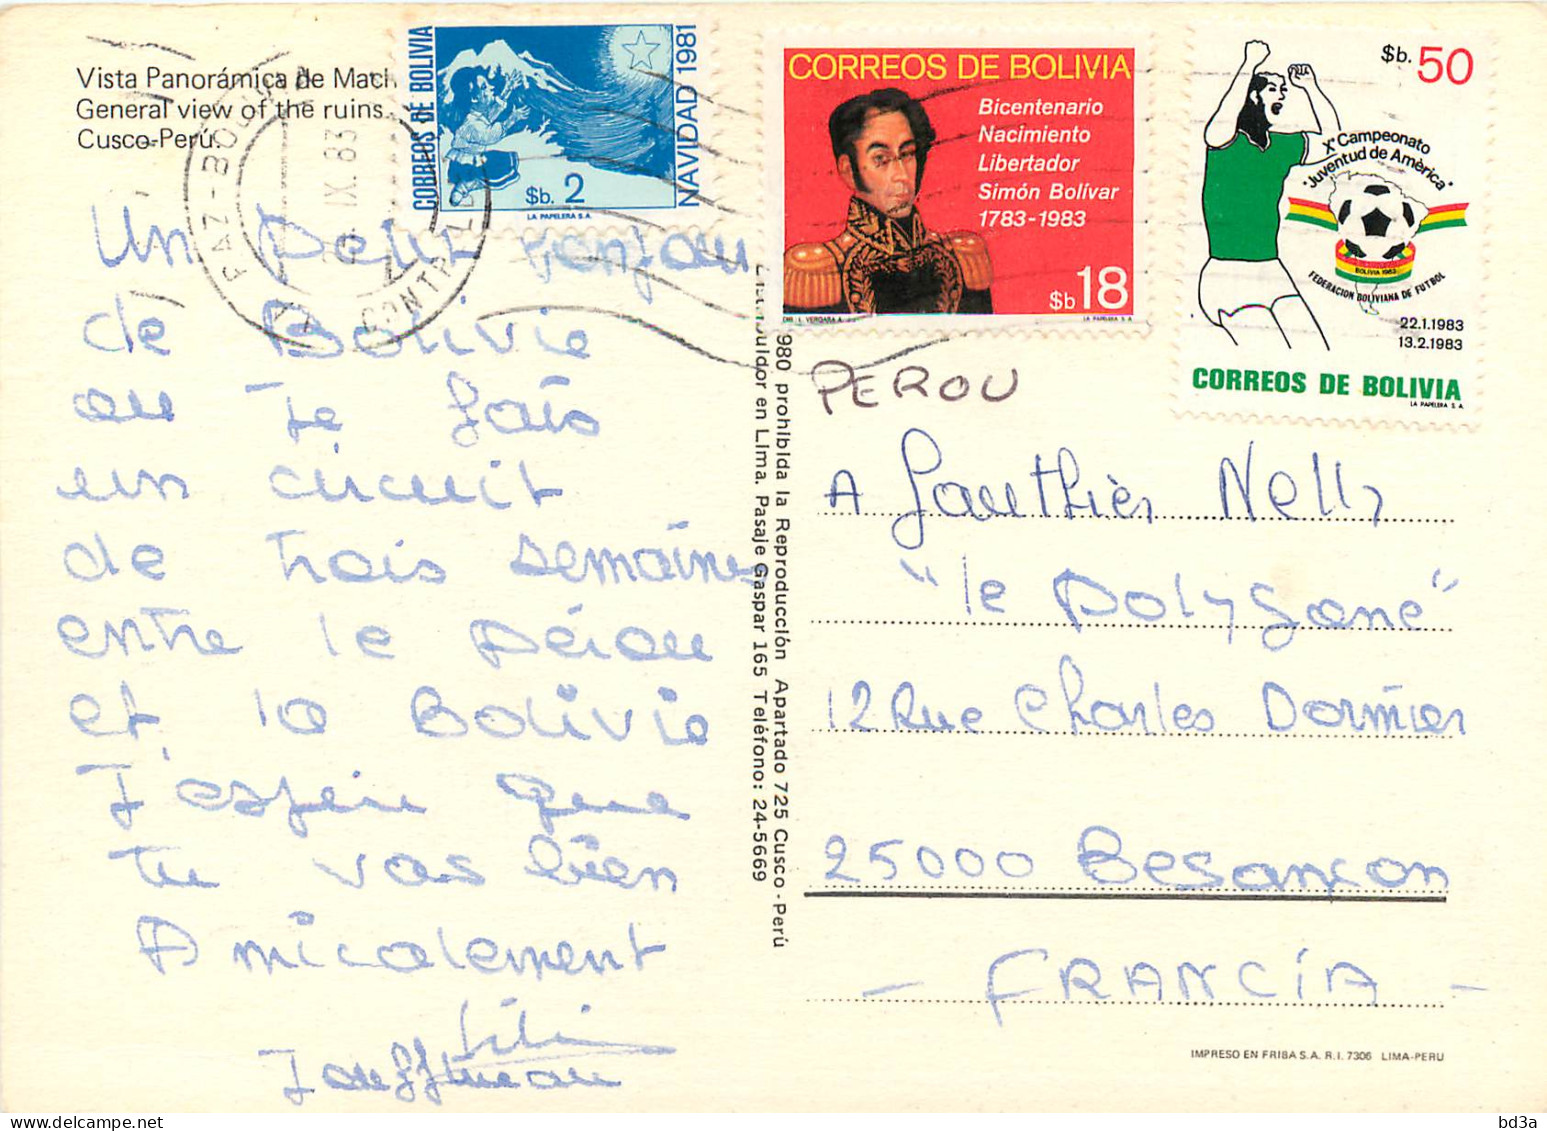 Vista Panorámica de Mac
General view of the ruins.
Cusco-Perú.
CORREOS DE BOLIVIA
NAVIDAD 1981
$b. 2
LA PAPELERA S.A.
CORREOS DE BOLIVIA
Bicentenario
Nacimiento
Libertador
Simón Bolívar
1783-1983
$b 18
LA PAPELERA S.A.
$b. 50
Xº Campeonato
"Juventud de Amèrica"
BOLIVIA 1983
FEDERACION BOLIVIANA DE FUTBOL
22.1.1983
13.2.1983
CORREOS DE BOLIVIA
LA PAPELERA S.A.
LA PAZ-BOLIVIA
IX. 83
Un petit bonjour
de Bolivie
ou je fais
un circuit
de trois semaines
entre le pérou
et la Bolivie
J'espère que
tu vas bien
Amicalement
Lili
980 prohibida la Reproducción Apartado 725 Cusco - Perú
Distribuidor en Lima. Pasaje Gaspar 165 Teléfono: 24-5669
PEROU
A Gauthier Nelly
"le polygone"
12 Rue Charles Dornier
25000 Besançon
- FRANCÍA -
IMPRESO EN FRIBA S.A. R.I. 7306 LIMA-PERU
bd3a